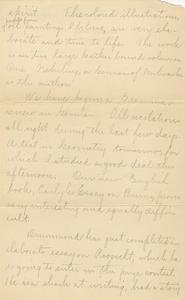 spirit. The colored illustrations,
oil painting, I believe, are very elab-
orate and true to life. The work
is in two large leather bound volumes
One Nehrling, a German of Milwaukee
is the author.
We have begun a Grammar
review in German. All recitations
all right during the last few days.
A test in Geometry tomorrow, for
which I studied a good deal this
afternoon. Our new English
book, Carlyle's Essay on Burns, proves
very interesting and equally diffi-
cult.
Drummond has just completed an
elaborate essay on Roosevelt, which he
is going to enter in the prize contest.
He is a shark at writing, had a story